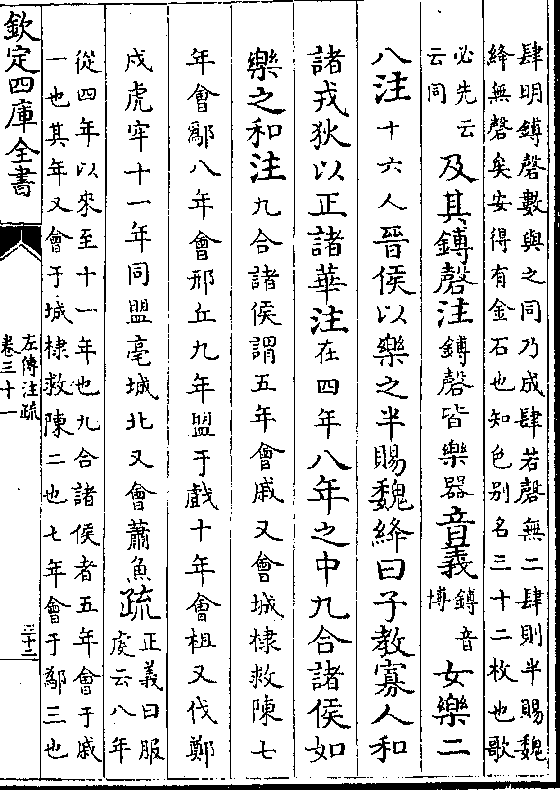 肆明鎛磬數與之同乃成肆若磬無二肆則半賜魏
絳無磬矣安得有金石也知色别名三十二枚也歌
必先云
云同
及其鎛磬注鎛磬皆樂器音義
鎛音
博
女樂二
八注十六人晉侯以樂之半賜魏絳曰子教寡人和
諸戎狄以正諸華注在四年八年之中九合諸侯如
樂之和注九合諸侯謂五年會戚又會城棣救陳七
年會鄬八年會邢丘九年盟于戲十年會柤又伐鄭
戍虎牢十一年同盟亳城北又會蕭魚疏
正義曰服
虔云八年
從四年以來至十一年也九合諸侯者五年會于戚
一也其年又會于城棣救陳二也七年會于鄬三也
欽定四庫全書
左傳注疏
卷三十一